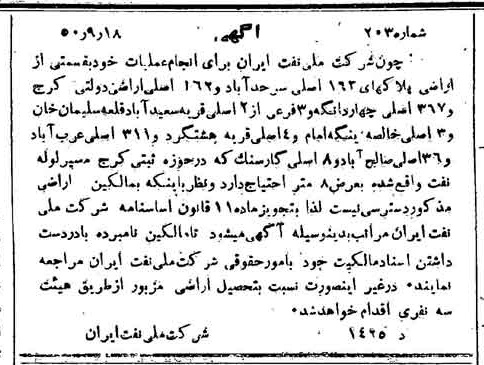 شماره ۲۰۳ آگهی ۵۰٫۹٫۱۸
چون شرکت ملی نفت ایران برای انجام عملیات خود بقسمتی از
اراضی پلاکهای ۱۶۳ اصلی سرحدآباد و ۱۶۲ اصلی اراضی دولتی کرج
و ۳۶۷ اصلی چهاردانگه و ۳ فرعی از ۲ اصلی قریه سعیدآباد قلعه سلیمان خان
و ۳ اصلی خالصه ینگه امام و ۴ اصلی قریه هشتگرد و ۳۱۱ اصلی عرب آباد
و ۳۶ اصلی صالح آباد و ۸ اصلی گازسنگ که در حوزه ثبتی کرج مسیر لوله
نفت واقع شده بعرض ۸ متر احتیاج دارد و نظر باینکه بمالکین اراضی
مذکور دسترسی نیست لذا بتجویز ماده ۱۱ قانون اساسنامه شرکت ملی
نفت ایران مراتب بدینوسیله آگهی میشود تا مالکین نامبرده بادردست
داشتن اسناد مالکیت خود بامور حقوقی شرکت ملی نفت ایران مراجعه
نمایند۰ درغیر اینصورت نسبت بتحصیل اراضی مزبور ازطریق هیئت
سه نفری اقدام خواهد شد۰
د ۱۴۲۵ شرکت ملی نفت ایران